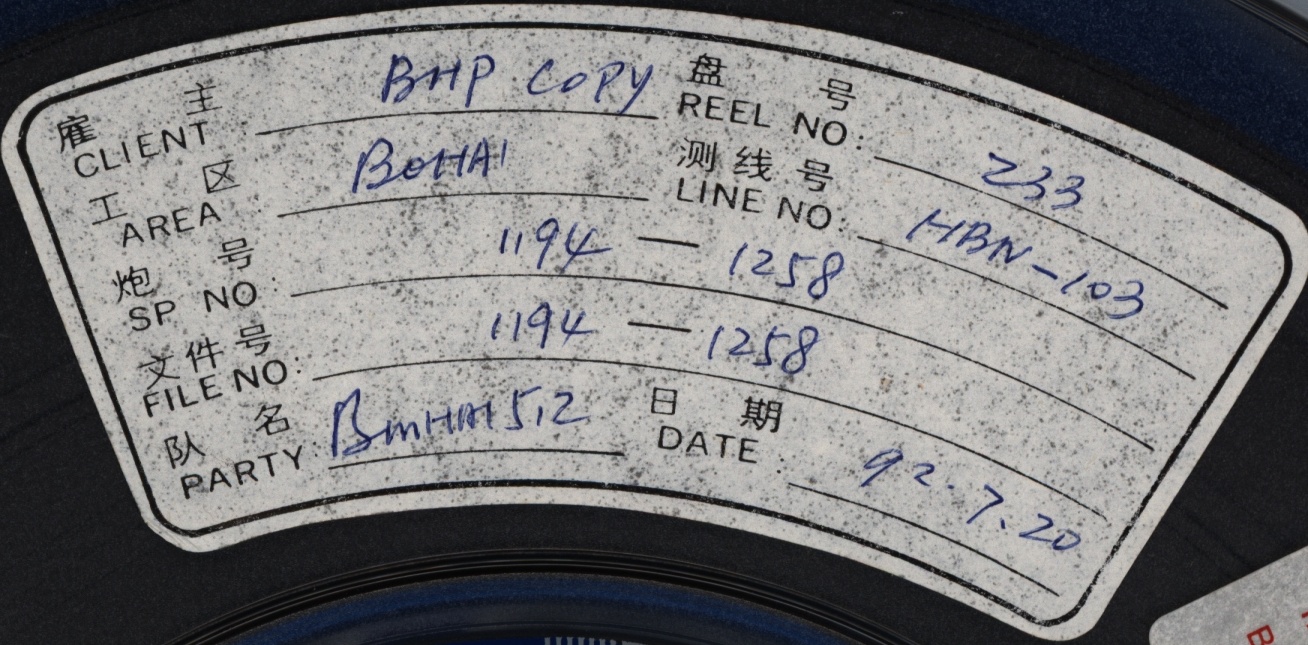 雇 主 CLIENT : BHP COPY
盘 号 REEL NO: 233
工 区 AREA : BOHAI
测线号 LINE NO: HBN-103
炮 号 SP NO : 1194 — 1258
文件号 FILE NO: 1194 — 1258
队 名 PARTY: 512
日 期 DATE : 92.7.20
B